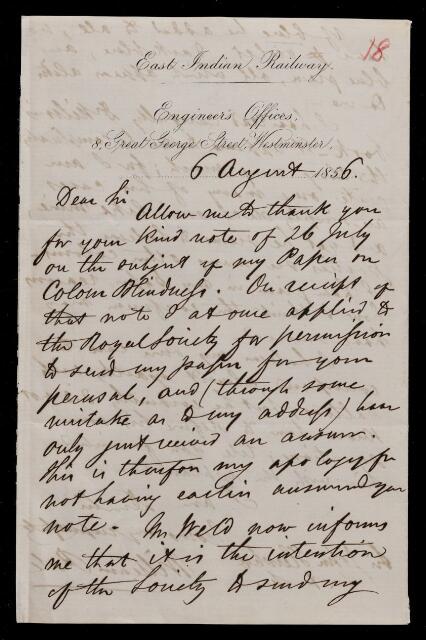 18
East Indian Railway.
Engineer's Offices,
8, Great George Street, Westminster,
6 August 1856.
Dear Sir
Allow me to thank you
for your kind note of 26 July
on the subject of my Paper on
Colour Blindness. On receipt of
that note I at once applied to
the Royal Society for permission
to send my paper for your
perusal, and (through some
mistake as to my address) have
only just received an answer.
This is therefore my apology for
not having earlier answered your
note. Mr Weld now informs
me that it is the intention
of the Society to send my